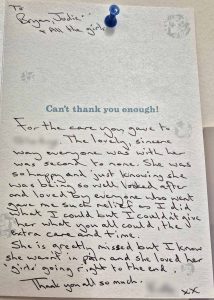 To
Bryan, Jodie..
+ All the girls
Can't thank you enough!
For the care you gave to
The lovely, sincere
way everyone was with her
was second to none. She was
so happy and just knowing she
was being so well looked after
and loved by everyone who went
gave me such relief as I did
what I could but I couldn't give
her what you all could, the
extra care and time.
She is greatly missed but I know
she wasn't in pain and she loved her
'girls' going right to the end.
Thank you all so much.
xx